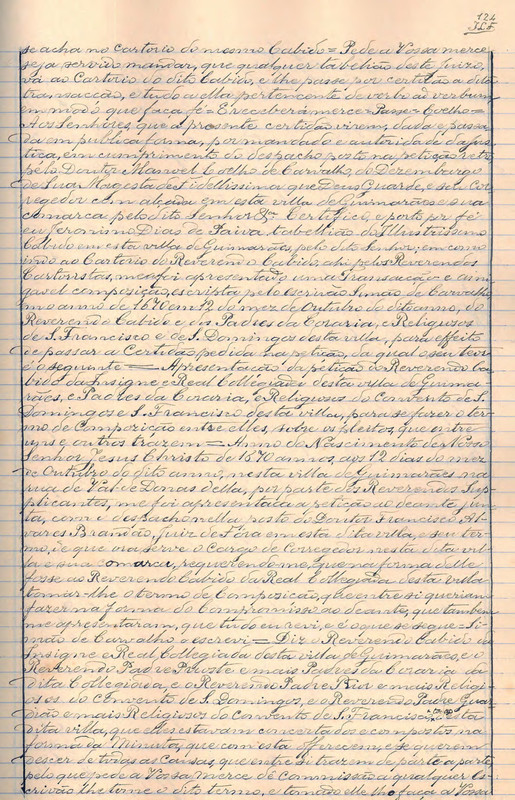 124
se acha no cartorio do mesmo Cabido = Pede a Vossa merce
seja servido mandar, que qualquer tabelião deste juizo,
vá ao Cartorio do dito Cabido, e lhe passe por certidão a dita
transacção, e tudo a ella pertencente de verbo ad verbum
em modo que faça fé = E recebera merce = Passe = Coelho =
Aos Senhores que a presente certidão virem, dada e passa-
da em publica forma, por mandado e autoridade da jus-
tiça, em cumprimento do despacho posto na petição retro
pelo Doutor Manoel Coelho de Carvalho, do Dezembargo
de Sua Magestade Fidellissima que Deus Guarde, e seu Cor-
regedor com alçada em esta villa de Guimarães e sua
comarca pelo dito Senhor &ª. Certifico, e porto por fé
eu Jeronimo Dias de Paiva, tabellião do Illustrissimo
Cabido em esta villa de Guimarães, pelo dito Senhor; em como
indo ao Cartorio do Reverendo Cabido, ahi pelos Reverendos
Cartoristas, me foi apresentado uma Transacção e ami-
gavel composição, escripta pelo escrivão Simão de Carvalho
no anno de 1670 em 12 do mez de Outubro do dito anno, do
Reverendo Cabido e dos Padres da Coraria, e Religiosos
de S. Francisco e de S. Domingos desta villa, para effeito
de passar a Certidão pedida na petição, da qual o seu teor
é o seguinte = Apresentação da petição do Reverendo Ca-
bido da Insigne e Real Collegiada desta villa de Guima-
rães, e Padres da Coraria, e Religiosos do Convento de S.
Domingos e S. Francisco desta villa, para se fazer o ter-
mo de Compozição entre elles, sobre os pleitos, que entre
uns e outros trazem = Anno do Nascimento de Nosso
Senhor Jesus Christo de 1670 annos, aos 12 dias do mez
de Outubro do dito anno, nesta villa de Guimarães na
rua de Val de Donas della, por parte dos Reverendos Sup-
plicantes, me foi apresentada a petição ao deante jun-
ta, com o despacho nella posto do Doutor Francisco Al-
vares Brandão, juiz de Fóra em esta dita villa, e seu ter-
mo, e que ora serve o Cargo de Corregedor nesta dita vil-
la e sua Comarca, requerendo-me, que na forma delle
fosse ao Reverendo Cabido da Real Collegiada desta villa
tomar-lhe o termo de Compozição, que entre si queriam
fazer na forma do Compromisso ao deante, que tambem
me apresentaram, que tudo eu vi, e é o que se segue = Si-
mão de Carvalho o escrevi = Diz o Reverendo Cabido da
Insigne e Real Collegiada desta villa de Guimarães, e o
Reverendo Padre Prioste e mais Padres da Coraria da
dita Collegiada, e o Reverendo Padre Prior e mais Religi-
osos do Convento de S. Domingos, e o Reverendo Padre Guar-
dião e mais Religiosos do convento de S. Francisco, desta
dita villa, que elles estavam concertados e compostos na
forma da Minuta, que com esta offerecem, e se querem
descer de todas as causas, que entre si trazem de parte a parte
pelo que pede a Vossa merce de commissão a qualquer Es-
crivão lhe tome o dito termo, e tomado elle lho faça a Vossa